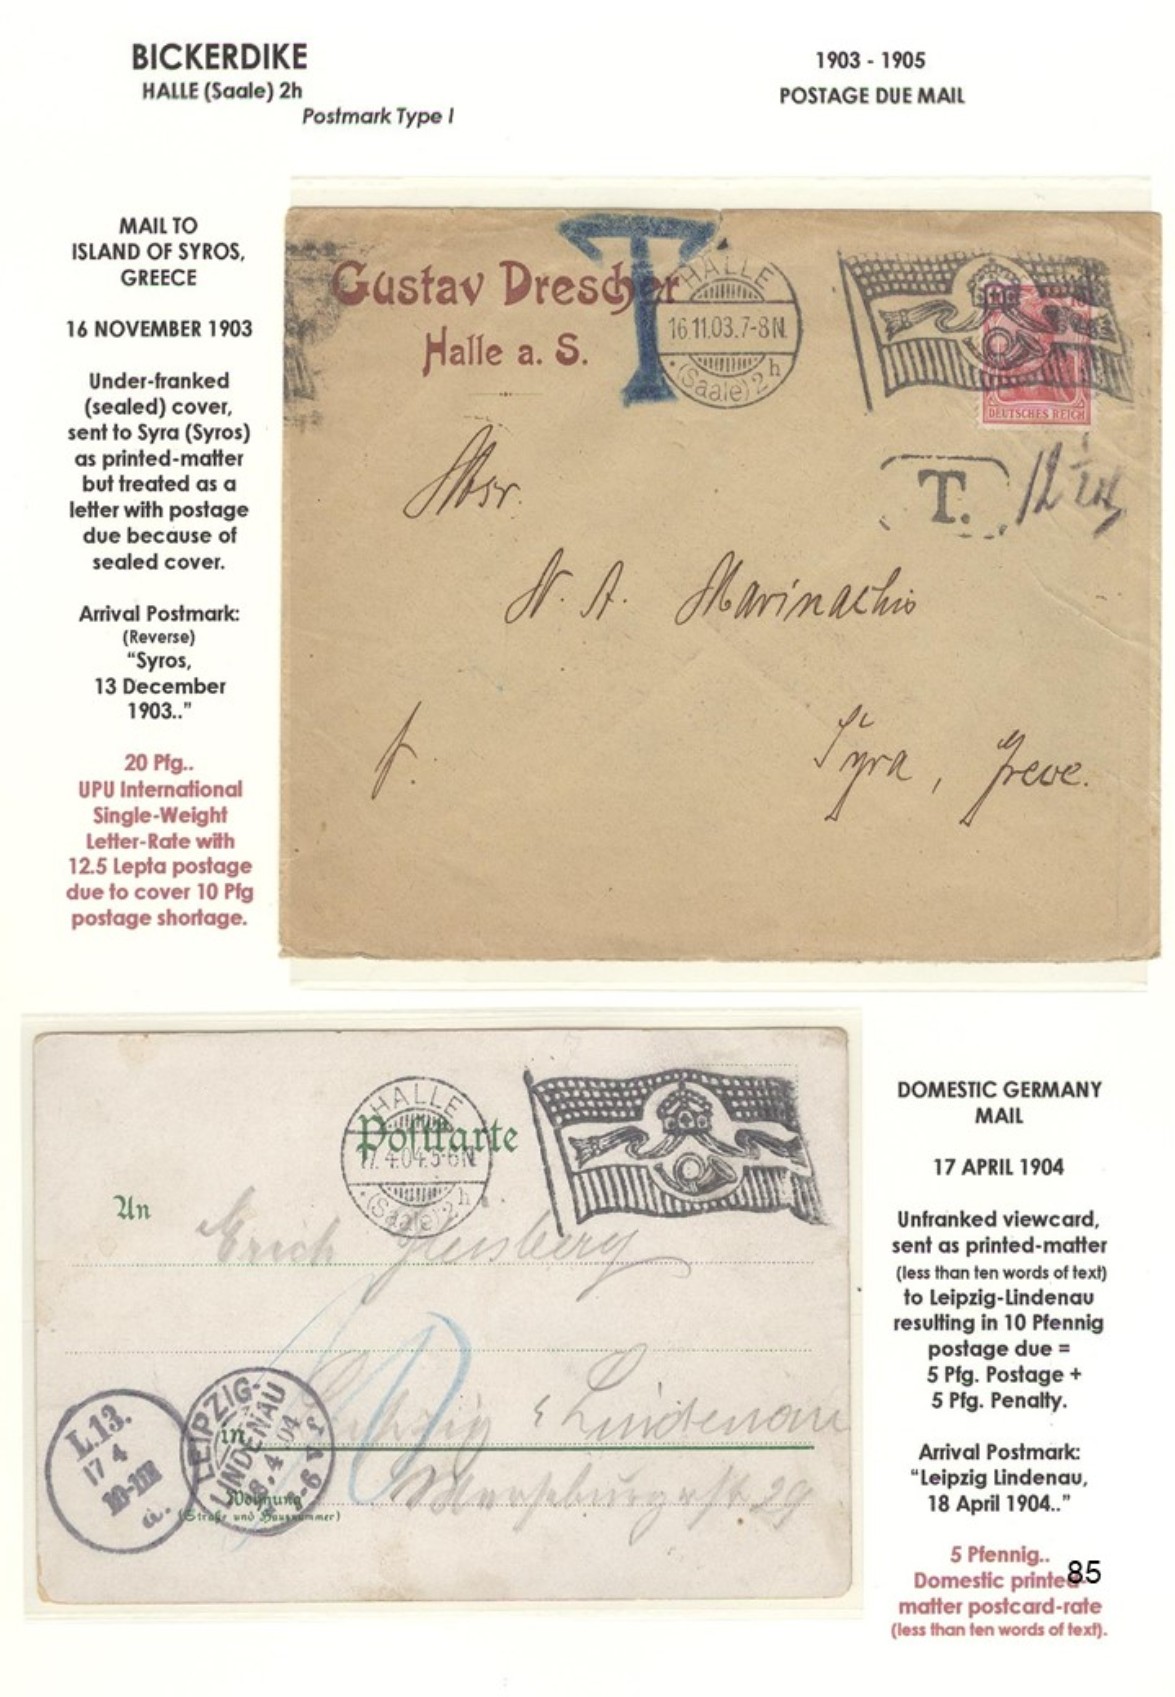 BICKERDIKE
HALLE (Saale) 2h
Postmark Type I
1903 - 1905
POSTAGE DUE MAIL
MAIL TO
ISLAND OF SYROS,
GREECE
16 NOVEMBER 1903
Under-franked
(sealed) cover,
sent to Syra (Syros)
as printed-matter
but treated as a
letter with postage
due because of
sealed cover.
Arrival Postmark:
(Reverse)
"Syros,
13 December
1903.."
20 Pfg..
UPU International
Single-Weight
Letter-Rate with
12.5 Lepta postage
due to cover 10 Pfg
postage shortage.
T
Gustav Drescher
Halle a. S.
HALLE
16.11.03.7-8N.
(Saale) 2h
DEUTSCHES REICH
T.
12½
Msr.
N. A. Marinachio
Syra,
HALLE
17.4.04.5-6N.
(Saale) 2h
Postkarte
An
Erich
10
Leipzig Lindenau
in
Wohnung
(Straße und Hausnummer)
Merseburgerst 29
L.13.
17 4
a.
LEIPZIG-
LINDENAU
DOMESTIC GERMANY
MAIL
17 APRIL 1904
Unfranked viewcard,
sent as printed-matter
(less than ten words of text)
to Leipzig-Lindenau
resulting in 10 Pfennig
postage due =
5 Pfg. Postage +
5 Pfg. Penalty.
Arrival Postmark:
"Leipzig Lindenau,
18 April 1904.."
5 Pfennig..
Domestic printed-
matter postcard-rate
(less than ten words of text).
85